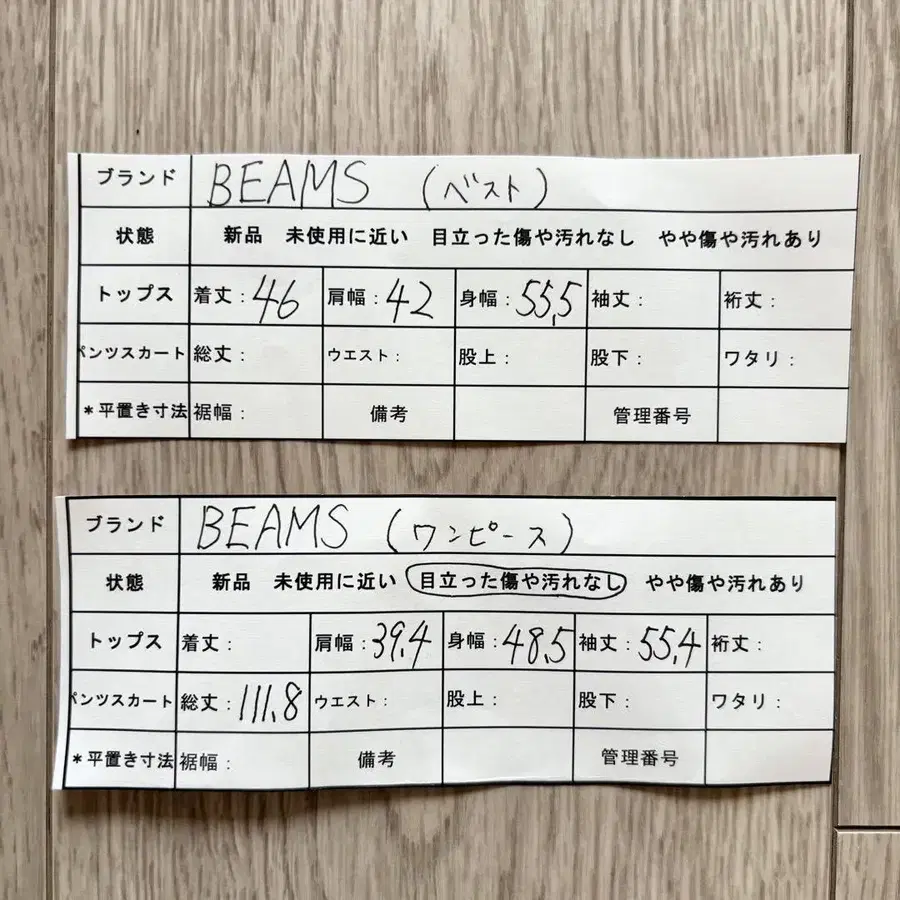 ブランド BEAMS (ベスト)
状態 新品 未使用に近い 目立った傷や汚れなし やや傷や汚れあり
トップス 着丈:46 肩幅:42 身幅:55,5 袖丈: 裄丈:
パンツスカート 総丈: ウエスト: 股上: 股下: ワタリ:
*平置き寸法 裾幅: 備考 管理番号
ブランド BEAMS (ワンピース)
状態 新品 未使用に近い 目立った傷や汚れなし やや傷や汚れあり
トップス 着丈: 肩幅:39,4 身幅:48,5 袖丈:55,4 裄丈:
パンツスカート 総丈:111,8 ウエスト: 股上: 股下: ワタリ:
*平置き寸法 裾幅: 備考 管理番号